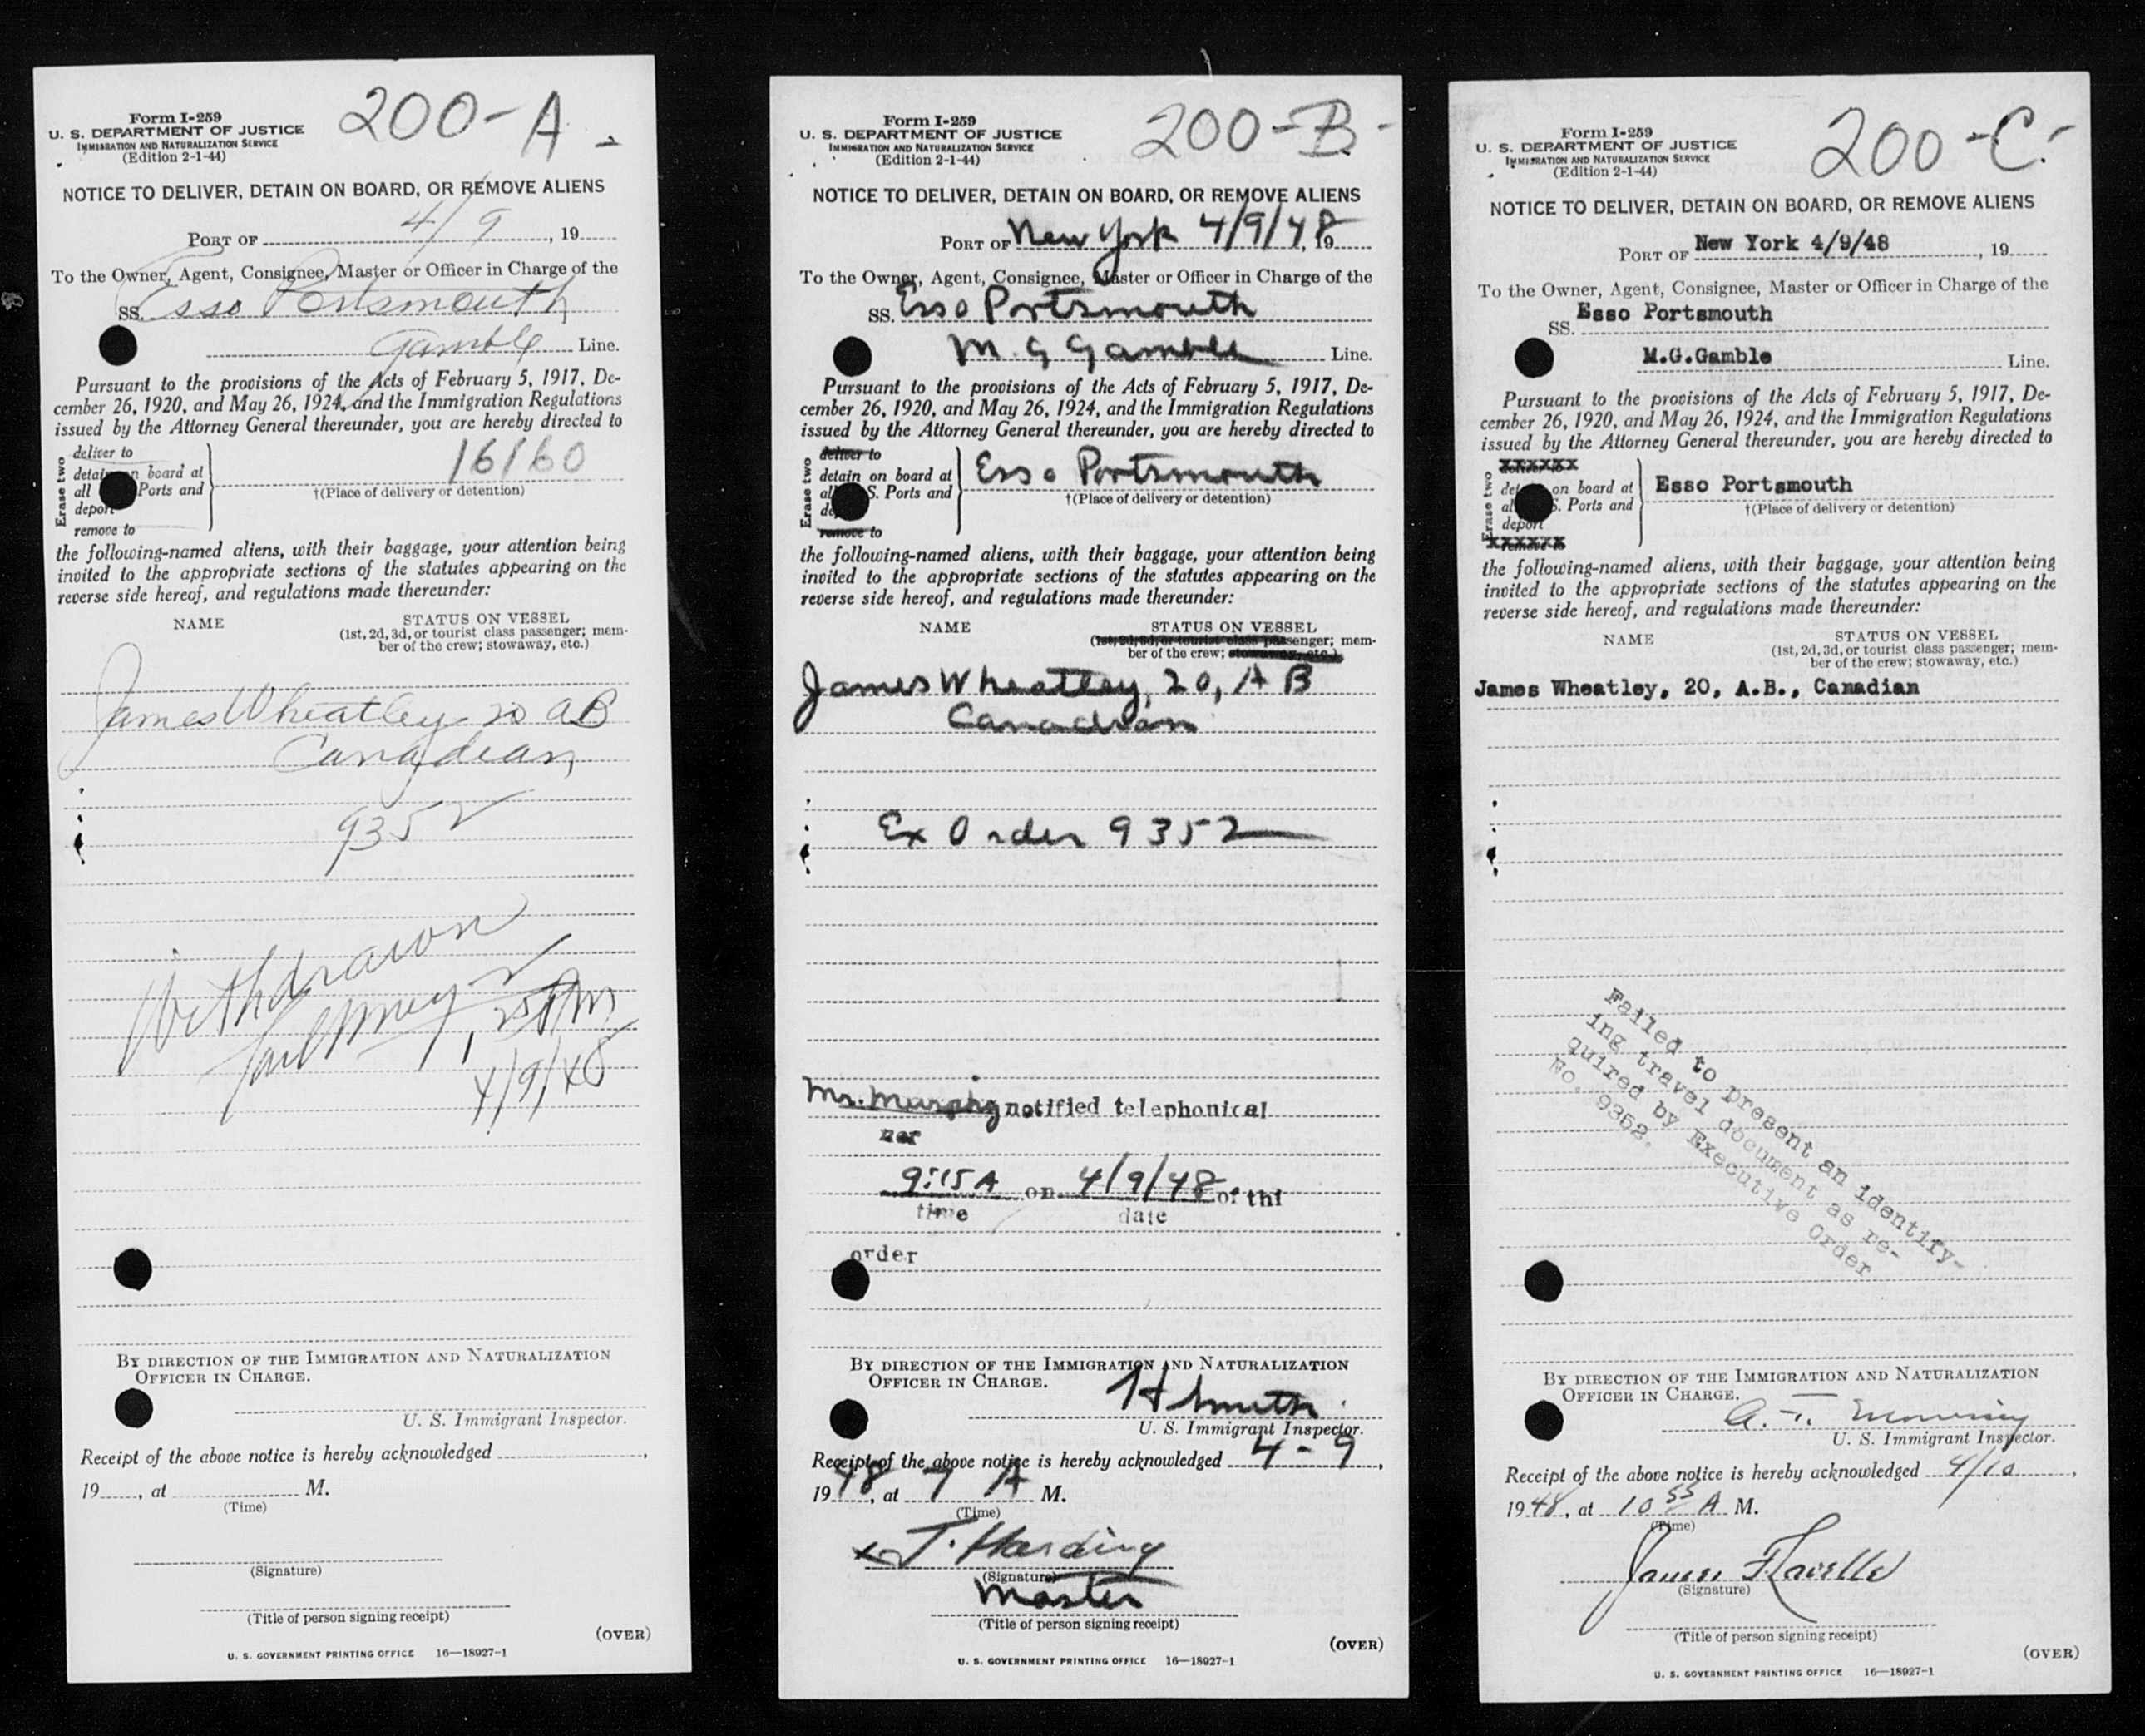 200-A
Form I-259
U. S. DEPARTMENT OF JUSTICE
IMMIGRATION AND NATURALIZATION SERVICE
(Edition 2-1-44)
NOTICE TO DELIVER, DETAIN ON BOARD, OR REMOVE ALIENS
4/9
PORT OF , 19
To the Owner, Agent, Consignee, Master or Officer in Charge of the
SS. Esso Portsmouth
Gamble Line.
Pursuant to the provisions of the Acts of February 5, 1917, De-
cember 26, 1920, and May 26, 1924, and the Immigration Regulations
issued by the Attorney General thereunder, you are hereby directed to
Erase two
deliver to
detain on board at
all Ports and
deport
remove to
16160
†(Place of delivery or detention)
the following-named aliens, with their baggage, your attention being
invited to the appropriate sections of the statutes appearing on the
reverse side hereof, and regulations made thereunder:
NAME STATUS ON VESSEL
(1st, 2d, 3d, or tourist class passenger; mem-
ber of the crew; stowaway, etc.)
James Wheatley 20 AB
Canadian
9352
Withdrawn
4/9/48
BY DIRECTION OF THE IMMIGRATION AND NATURALIZATION
OFFICER IN CHARGE.
U. S. Immigrant Inspector.
Receipt of the above notice is hereby acknowledged ,
19 , at M.
(Time)
(Signature)
(Title of person signing receipt)
(OVER)
U. S. GOVERNMENT PRINTING OFFICE 16—18927-1
200-B-
Form I-259
U. S. DEPARTMENT OF JUSTICE
IMMIGRATION AND NATURALIZATION SERVICE
(Edition 2-1-44)
NOTICE TO DELIVER, DETAIN ON BOARD, OR REMOVE ALIENS
PORT OF New York 4/9/48, 19
To the Owner, Agent, Consignee, Master or Officer in Charge of the
SS. Esso Portsmouth
M. G Gamble Line.
Pursuant to the provisions of the Acts of February 5, 1917, De-
cember 26, 1920, and May 26, 1924, and the Immigration Regulations
issued by the Attorney General thereunder, you are hereby directed to
Erase two
deliver to
detain on board at
al S. Ports and
de
remove to
Esso Portsmouth
†(Place of delivery or detention)
the following-named aliens, with their baggage, your attention being
invited to the appropriate sections of the statutes appearing on the
reverse side hereof, and regulations made thereunder:
NAME STATUS ON VESSEL
(1st, 2d, 3d, or tourist class passenger; mem-
ber of the crew; stowaway, etc.)
James Wheatley, 20, A B
Canadian
Ex Order 9352
Mr. Murphy notified telephonical
9:15 A on 4/9/48 of thi
time date
order
BY DIRECTION OF THE IMMIGRATION AND NATURALIZATION
OFFICER IN CHARGE.
H Smith
U. S. Immigrant Inspector.
Receipt of the above notice is hereby acknowledged 4-9,
1948, at 7 A M.
(Time)
x J. Harding
(Signature)
Master
(Title of person signing receipt)
(OVER)
U. S. GOVERNMENT PRINTING OFFICE 16—18927-1
200-C-
Form I-259
U. S. DEPARTMENT OF JUSTICE
IMMIGRATION AND NATURALIZATION SERVICE
(Edition 2-1-44)
NOTICE TO DELIVER, DETAIN ON BOARD, OR REMOVE ALIENS
PORT OF New York 4/9/48 , 19
To the Owner, Agent, Consignee, Master or Officer in Charge of the
SS. Esso Portsmouth
M.G.Gamble Line.
Pursuant to the provisions of the Acts of February 5, 1917, De-
cember 26, 1920, and May 26, 1924, and the Immigration Regulations
issued by the Attorney General thereunder, you are hereby directed to
Erase two
XXXXXX
det on board at
al S. Ports and
deport
XXXXXX
Esso Portsmouth
†(Place of delivery or detention)
the following-named aliens, with their baggage, your attention being
invited to the appropriate sections of the statutes appearing on the
reverse side hereof, and regulations made thereunder:
NAME STATUS ON VESSEL
(1st, 2d, 3d, or tourist class passenger; mem-
ber of the crew; stowaway, etc.)
James Wheatley, 20, A.B., Canadian
Failed to present an identify-
ing travel document as re-
quired by Executive Order
No. 9352.
BY DIRECTION OF THE IMMIGRATION AND NATURALIZATION
OFFICER IN CHARGE.
U. S. Immigrant Inspector.
Receipt of the above notice is hereby acknowledged 4/10,
1948, at 10 55 A M.
(Time)
James Flavelle
(Signature)
(Title of person signing receipt)
(OVER)
U. S. GOVERNMENT PRINTING OFFICE 16—18927-1